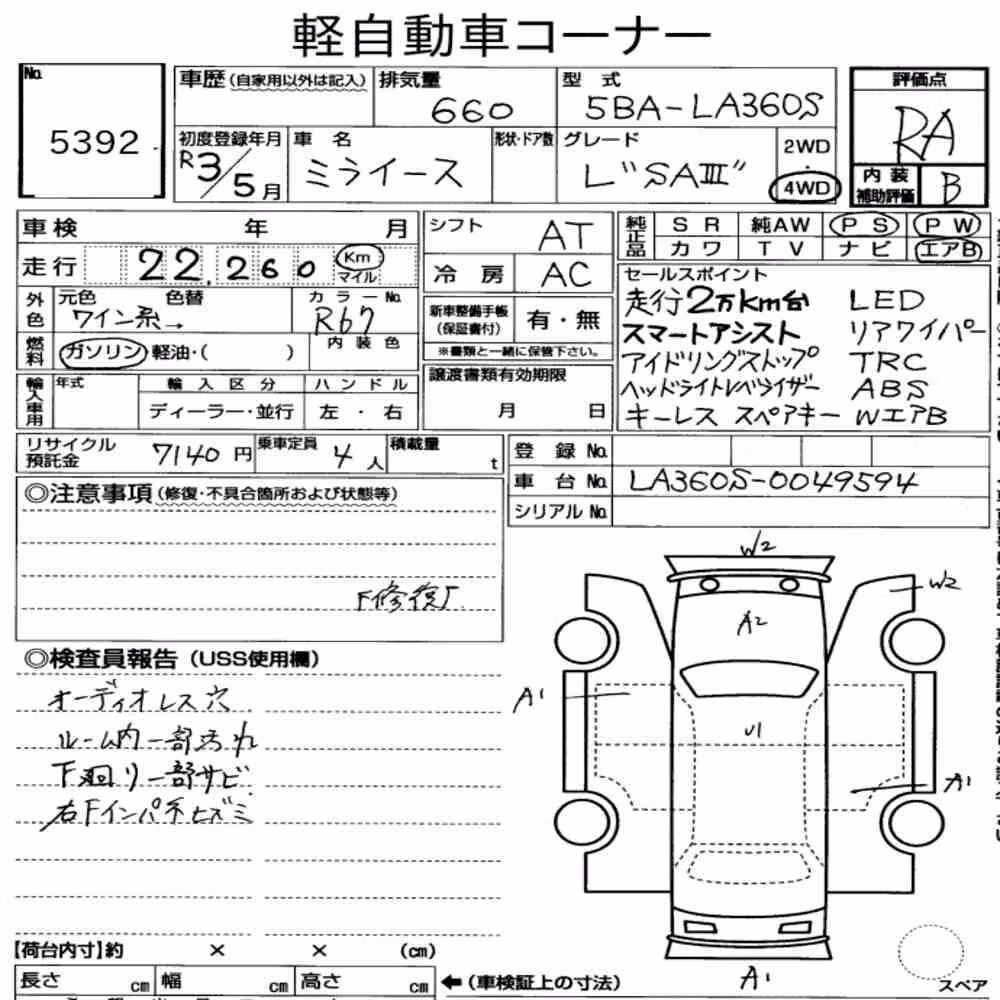 軽自動車コーナー
No. 5392
車歴(自家用以外は記入) 排気量 660 型式 5BA-LA360S 評価点 RA
初度登録年月 R3/5月 車名 ミライース 形状・ドア数 グレード L"SAⅢ" 2WD・4WD 内装補助評価 B
車検 年 月
走行 22,260 Km マイル
外色 元色 色替 ワイン系→ カラーNo. R67
燃料 ガソリン 軽油・( ) 内装色
輸入車用 年式 輸入区分 ディーラー・並行 ハンドル 左・右
シフト AT
冷房 AC
新車整備手帳(保証書付) 有・無
※書類と一緒に保管下さい。
譲渡書類有効期限
月 日
純正品 SR 純AW PS PW
カワ TV ナビ エアB
セールスポイント
走行2万km台 LED
スマートアシスト リアワイパー
アイドリングストップ TRC
ヘッドライトレベライザー ABS
キーレス スペアキー WエアB
リサイクル預託金 7140円 乗車定員 4人 積載量 t
登録No.
車台No. LA360S-0049594
シリアルNo.
◎注意事項(修復・不具合箇所および状態等)
F修復
◎検査員報告(USS使用欄)
オーディオレス穴
ルーム内一部汚れ
下廻り一部サビ
右Fインパネヒズミ
W2
W2
A2
A1
U1
A1
A1
スペア
【荷台内寸】約 × × (cm)
長さ cm 幅 cm 高さ cm ←(車検証上の寸法)